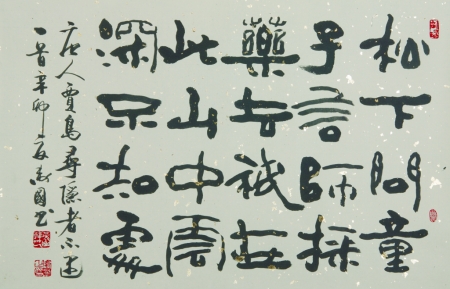 松下問童
子言師採
藥去祗在
此山中雲
深不知處
唐人賈島尋隱者不遇
一首辛卯夏國书